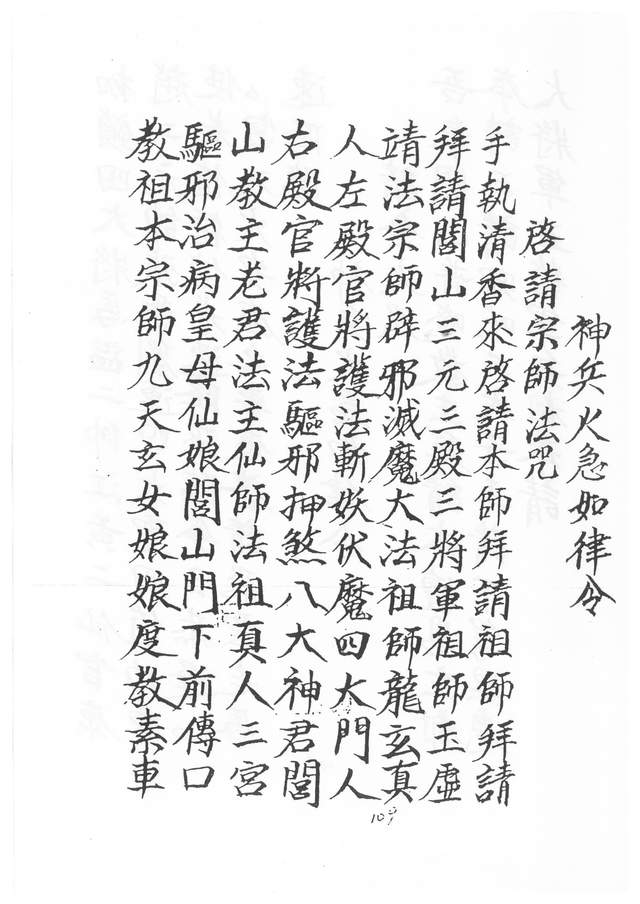 神兵火急如律令
啓請宗師法咒
手執清香來啓請本師拜請祖師拜請
拜請閭山三元三殿三將軍祖師玉虛
靖法宗師辟邪滅魔大法祖師龍玄真
人左殿官將護法斬妖伏魔四大門人
右殿官將護法驅邪押煞八大神君閭
山教主老君法主仙師法祖真人三宮
驅邪治病皇母仙娘閭山門下前傳口
教祖本宗師九天玄女娘娘度教素車
109